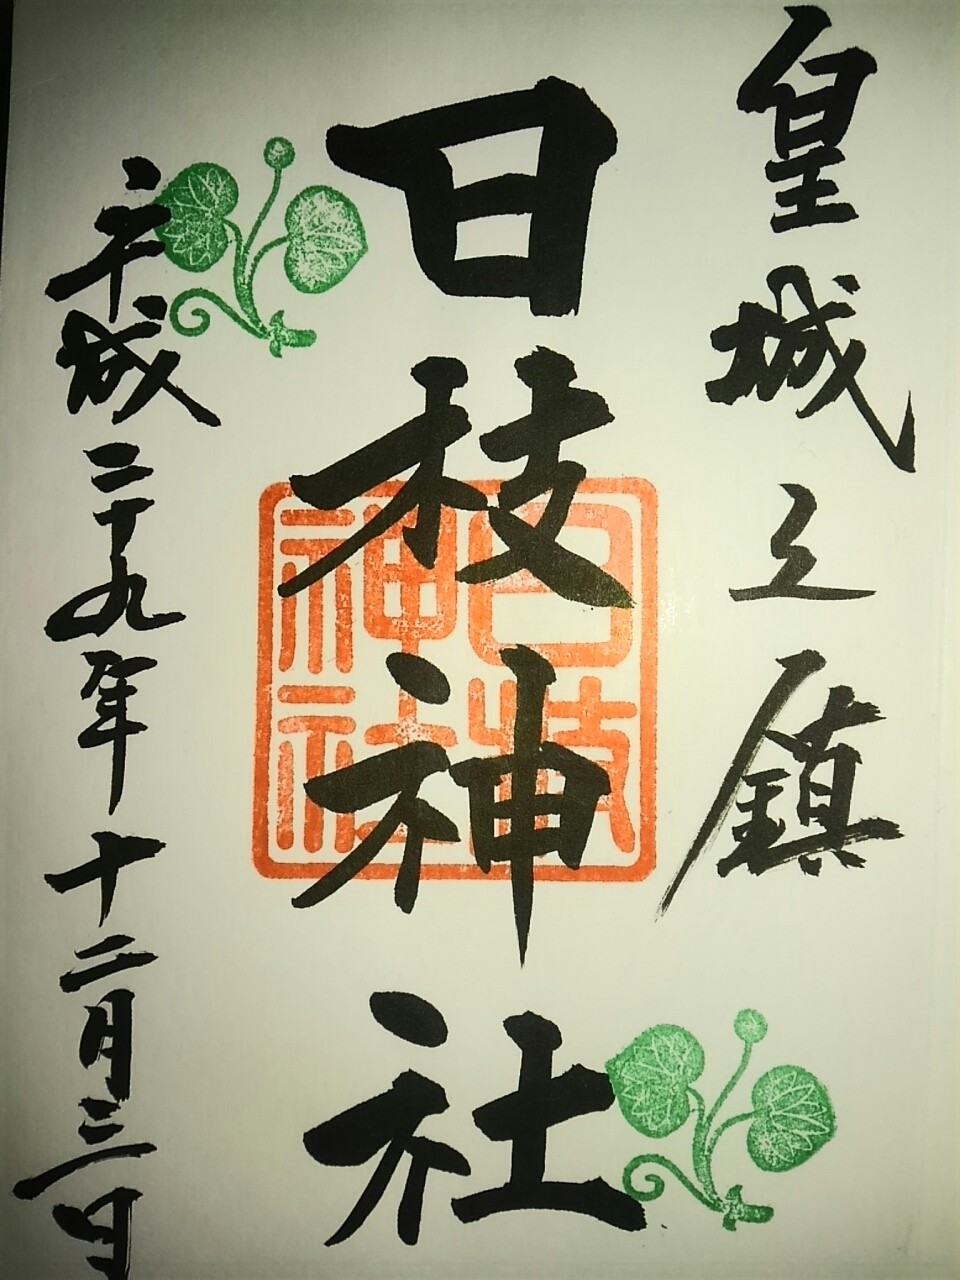 皇城之鎮
日枝神社
日枝神社
平成二十九年十二月三日